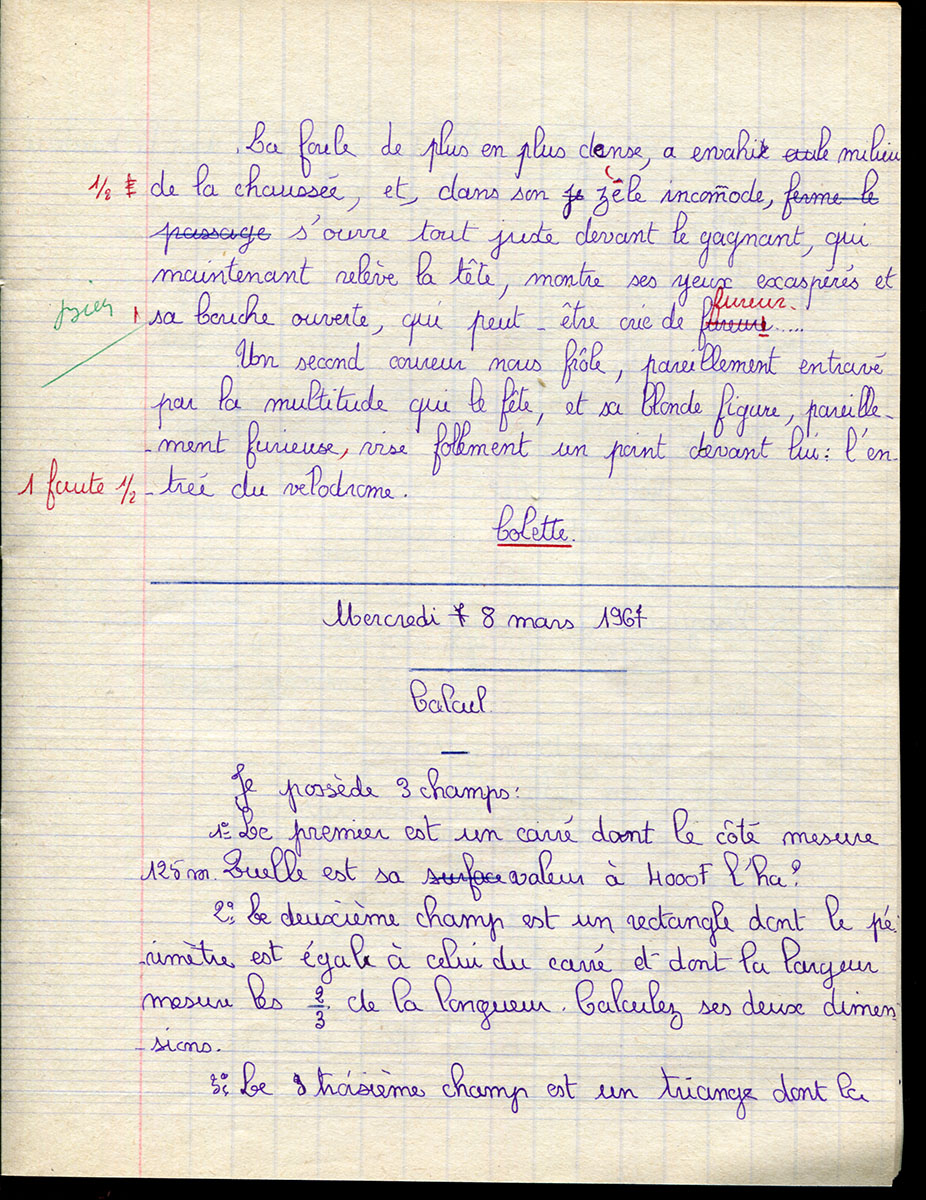 La foule de plus en plus dense, a envahit le milieu
1/2 de la chaussée, et, dans son zèle incommode, ferme le
passage s'ouvre tout juste devant le gagnant, qui
maintenant relève la tête, montre ses yeux exaspérés et
fureur.
1 sa bouche ouverte, qui peut-être crie de fureur.....
Un second coureur nous frôle, pareillement entravé
par la multitude qui le fête, et sa blonde figure, pareille-
-ment furieuse, vise follement un point devant lui: l'en-
1 faute 1/2 -trée du velodrome.
Colette.
Mercredi 7 8 mars 1967
Calcul
Je possède 3 champs:
1° Le premier est un carré dont le côté mesure
125 m. Quelle est sa surface valeur à 4000F l'ha?
2° Le deuxième champ est un rectangle dont le pé-
-rimètre est égale à celui du carré et dont la largeur
mesure les 2/3 de la longueur. Calculez ses deux dimen-
-sions.
3° Le 3 troisième champ est un triange dont la